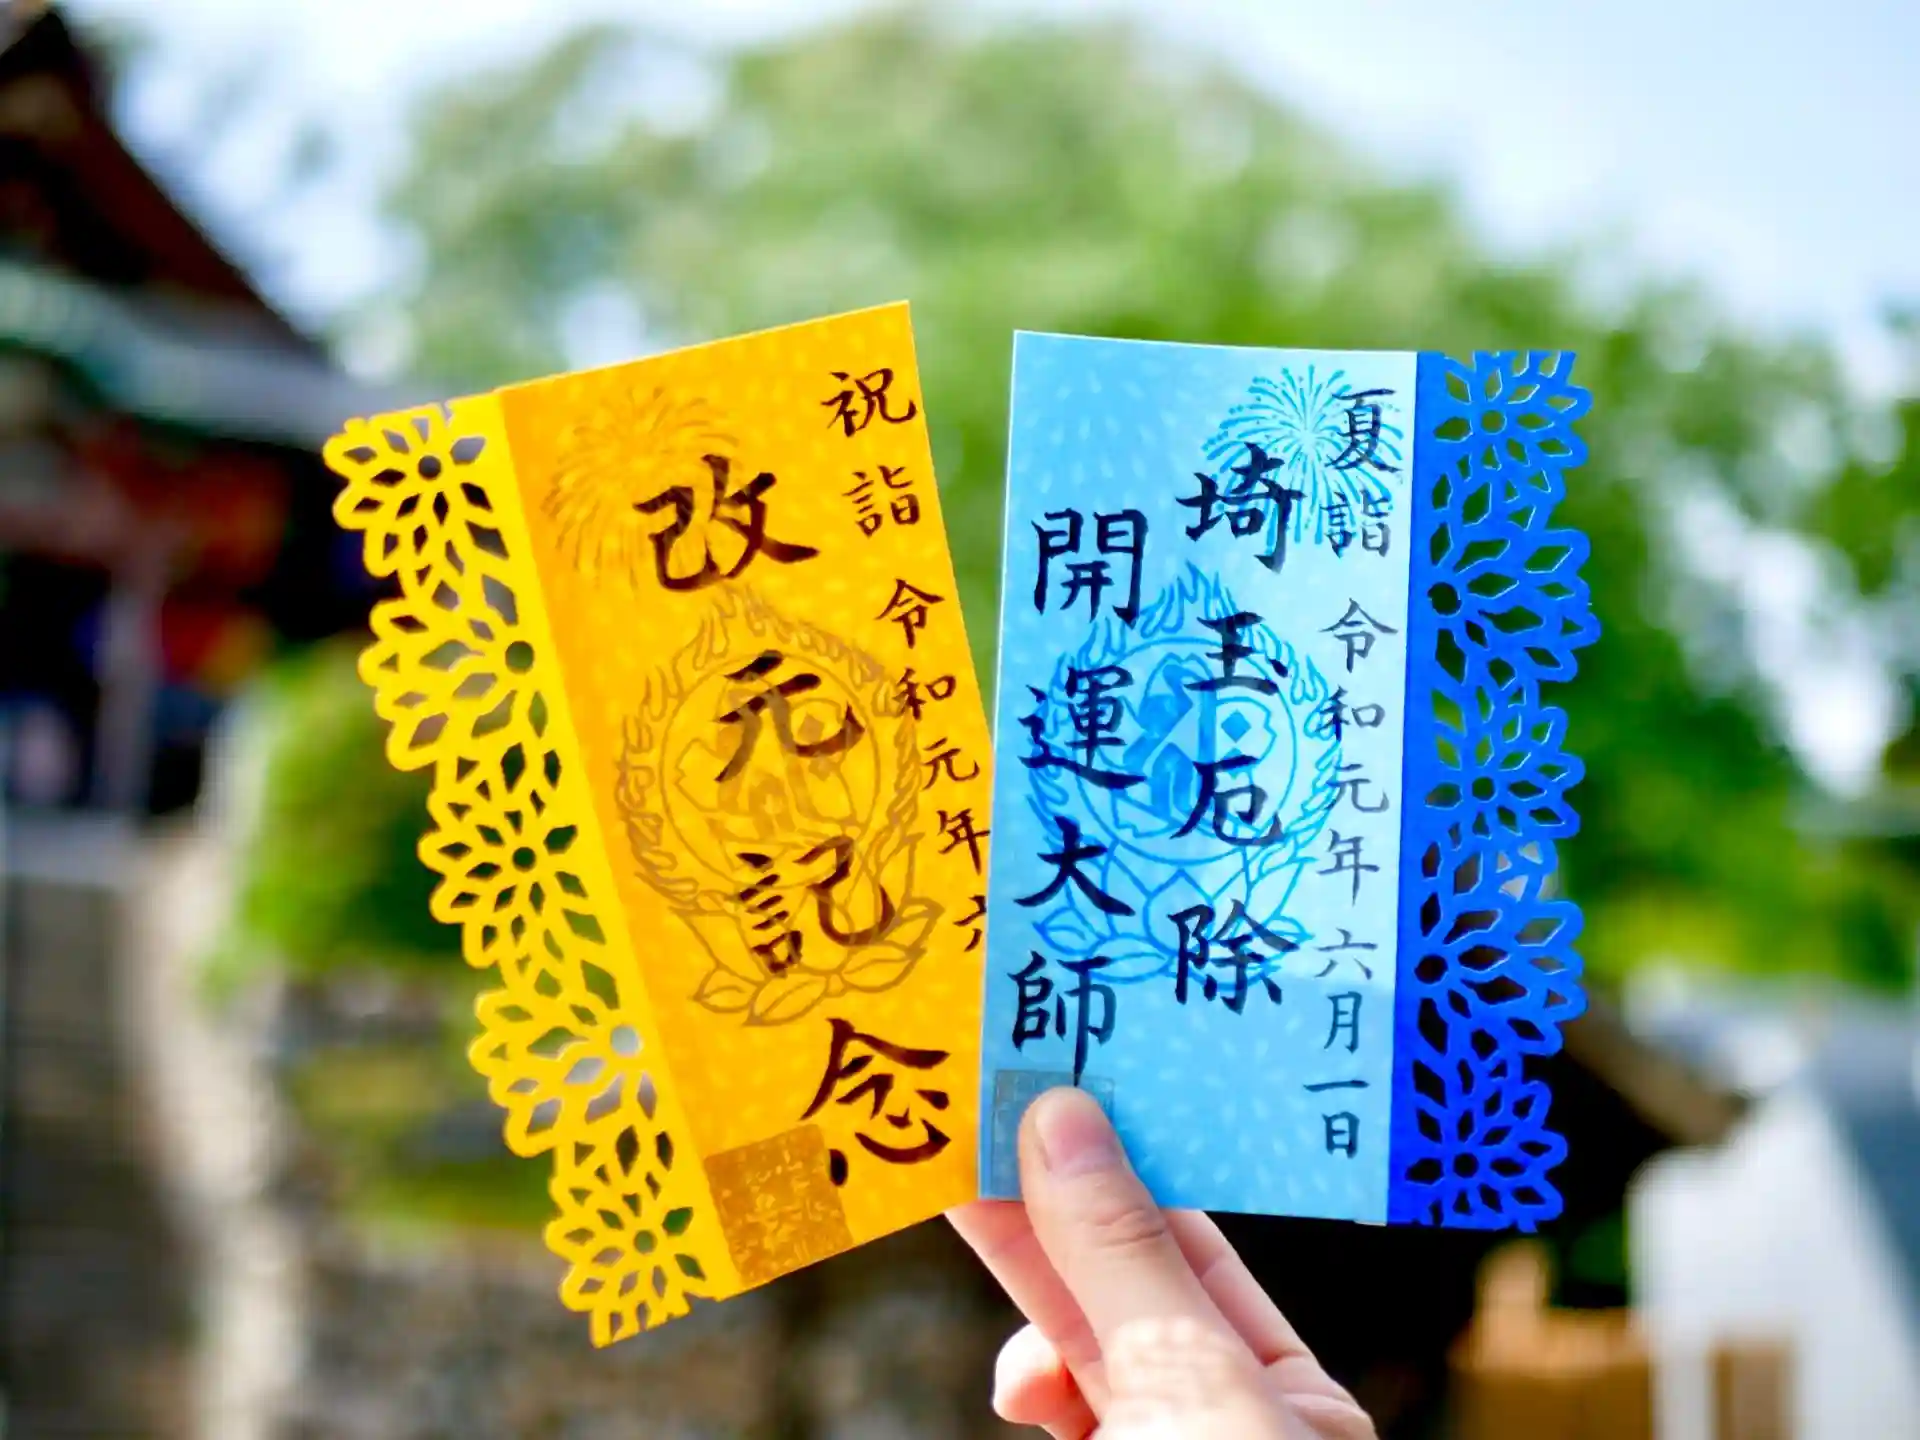 祝詣 令和元年六
改元記念
夏詣 令和元年六月一日
埼玉厄除
開運大師